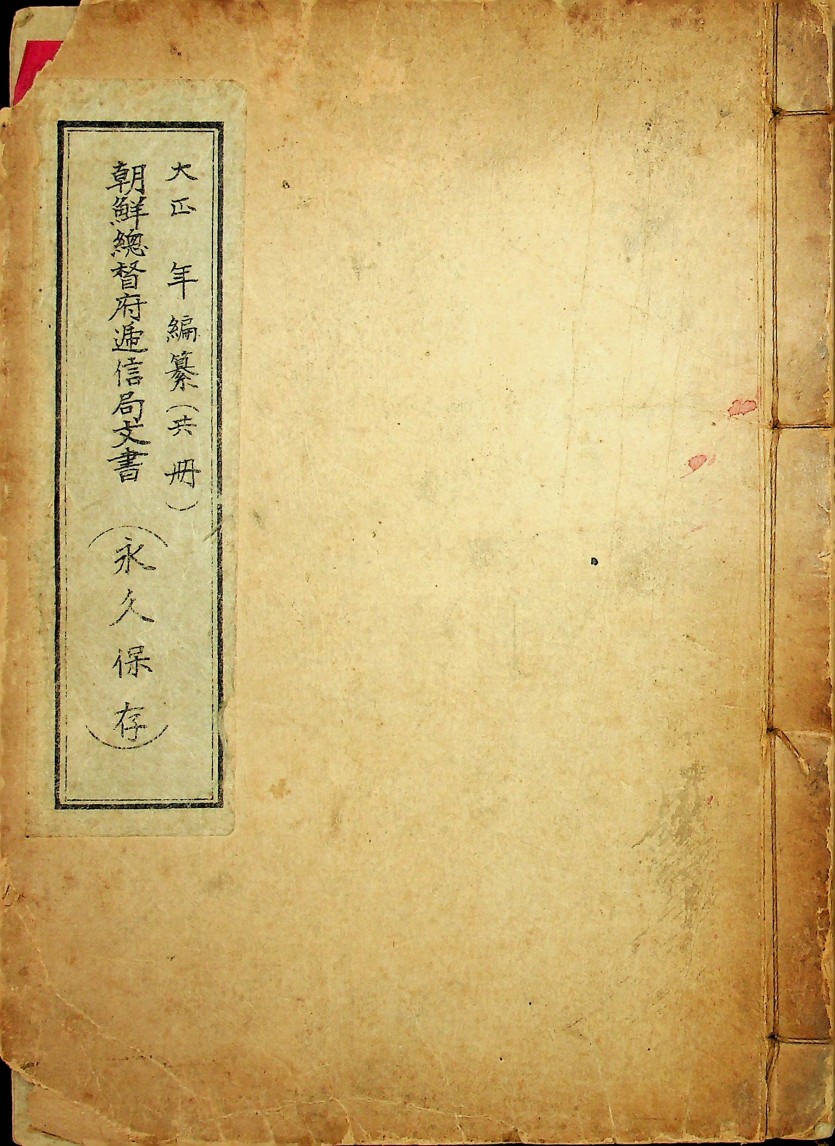 大正　年編纂（共　冊）
朝鮮總督府遞信局文書（永久保存）